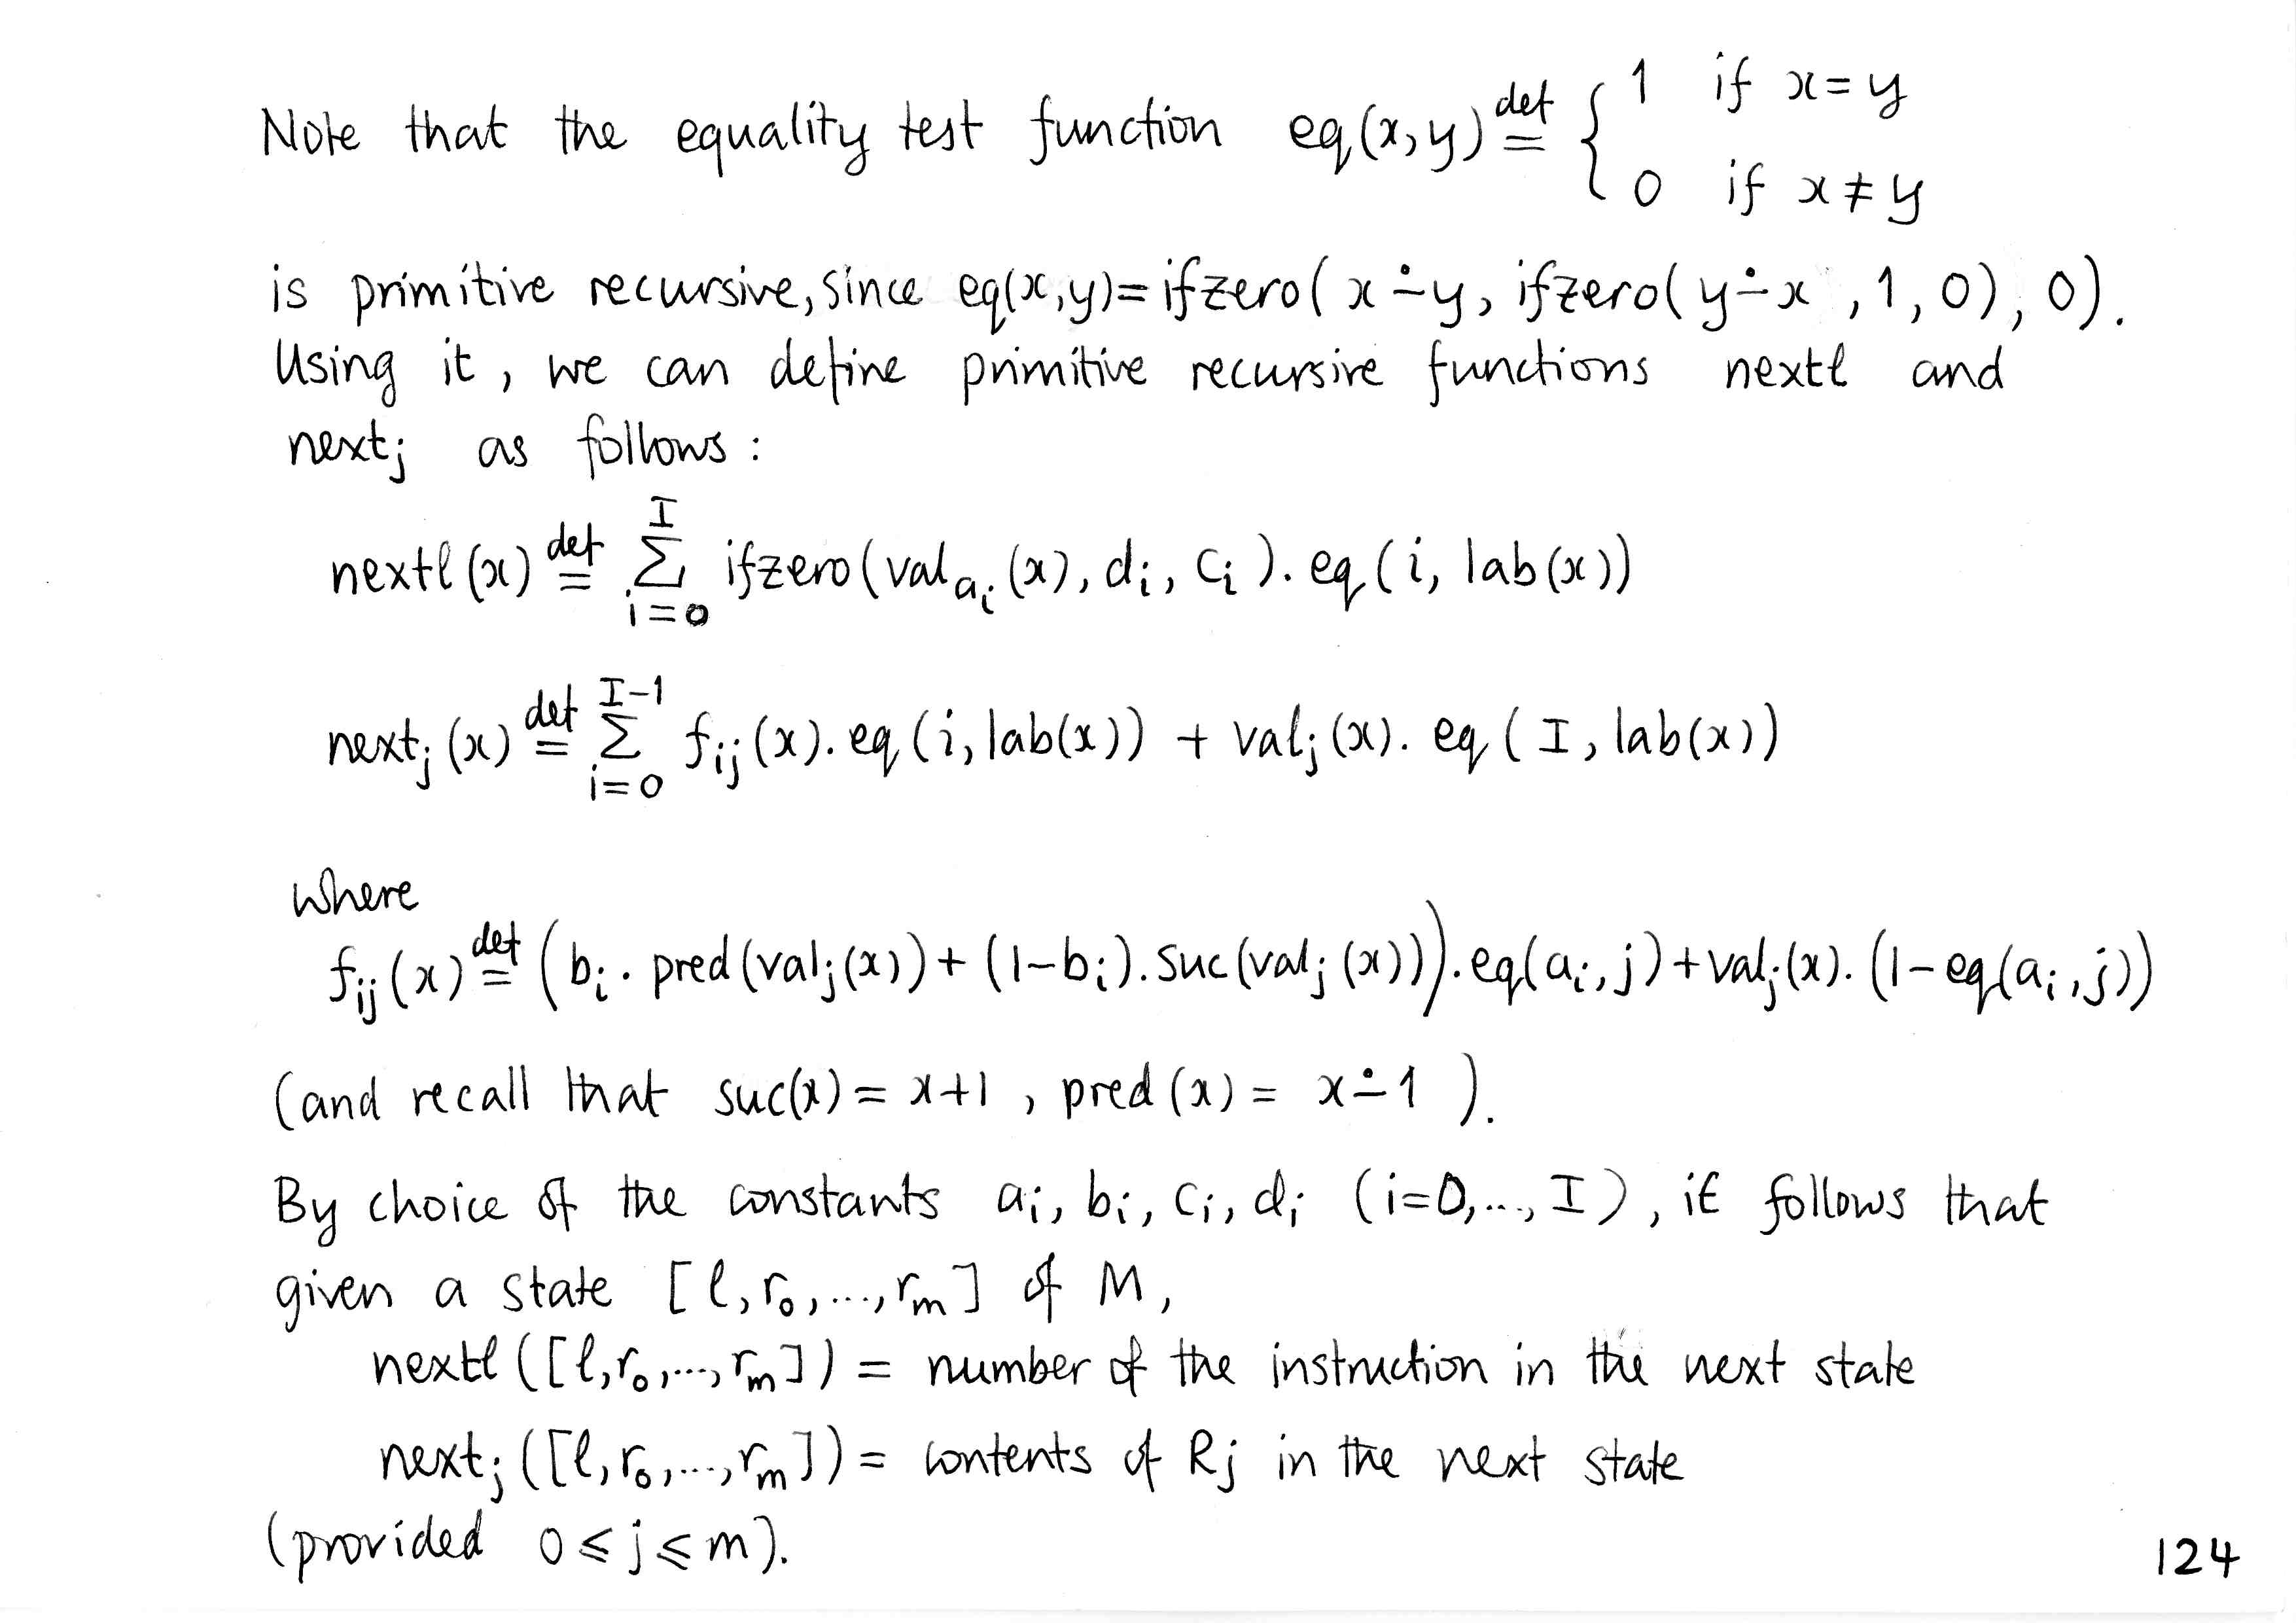 Note that the equality test function eq(x,y) def= { 1 if x=y
0 if x≠y
is primitive recursive, since eq(x,y)= ifzero( x∸y, ifzero( y∸x , 1, 0), 0).
Using it, we can define primitive recursive functions nextl and
next_j as follows :
nextl(x) def= Σ_{i=0}^{I} ifzero(val_{a_i}(x), d_i, c_i). eq(i, lab(x))
next_j(x) def= Σ_{i=0}^{I-1} f_{ij}(x). eq(i, lab(x)) + val_j(x). eq(I, lab(x))
where
f_{ij}(x) def= (b_i . pred(val_j(x)) + (1-b_i). suc(val_j(x))). eq(a_i, j) + val_j(x). (1-eq(a_i, j))
(and recall that suc(x) = x+1 , pred(x) = x∸1 ).
By choice of the constants a_i, b_i, c_i, d_i (i=0,..., I), it follows that
given a state [l, r_0, ..., r_m] of M,
nextl([l, r_0, ..., r_m]) = number of the instruction in the next state
next_j([l, r_0, ..., r_m]) = contents of Rj in the next state
(provided 0 ⩽ j ⩽ m).
124